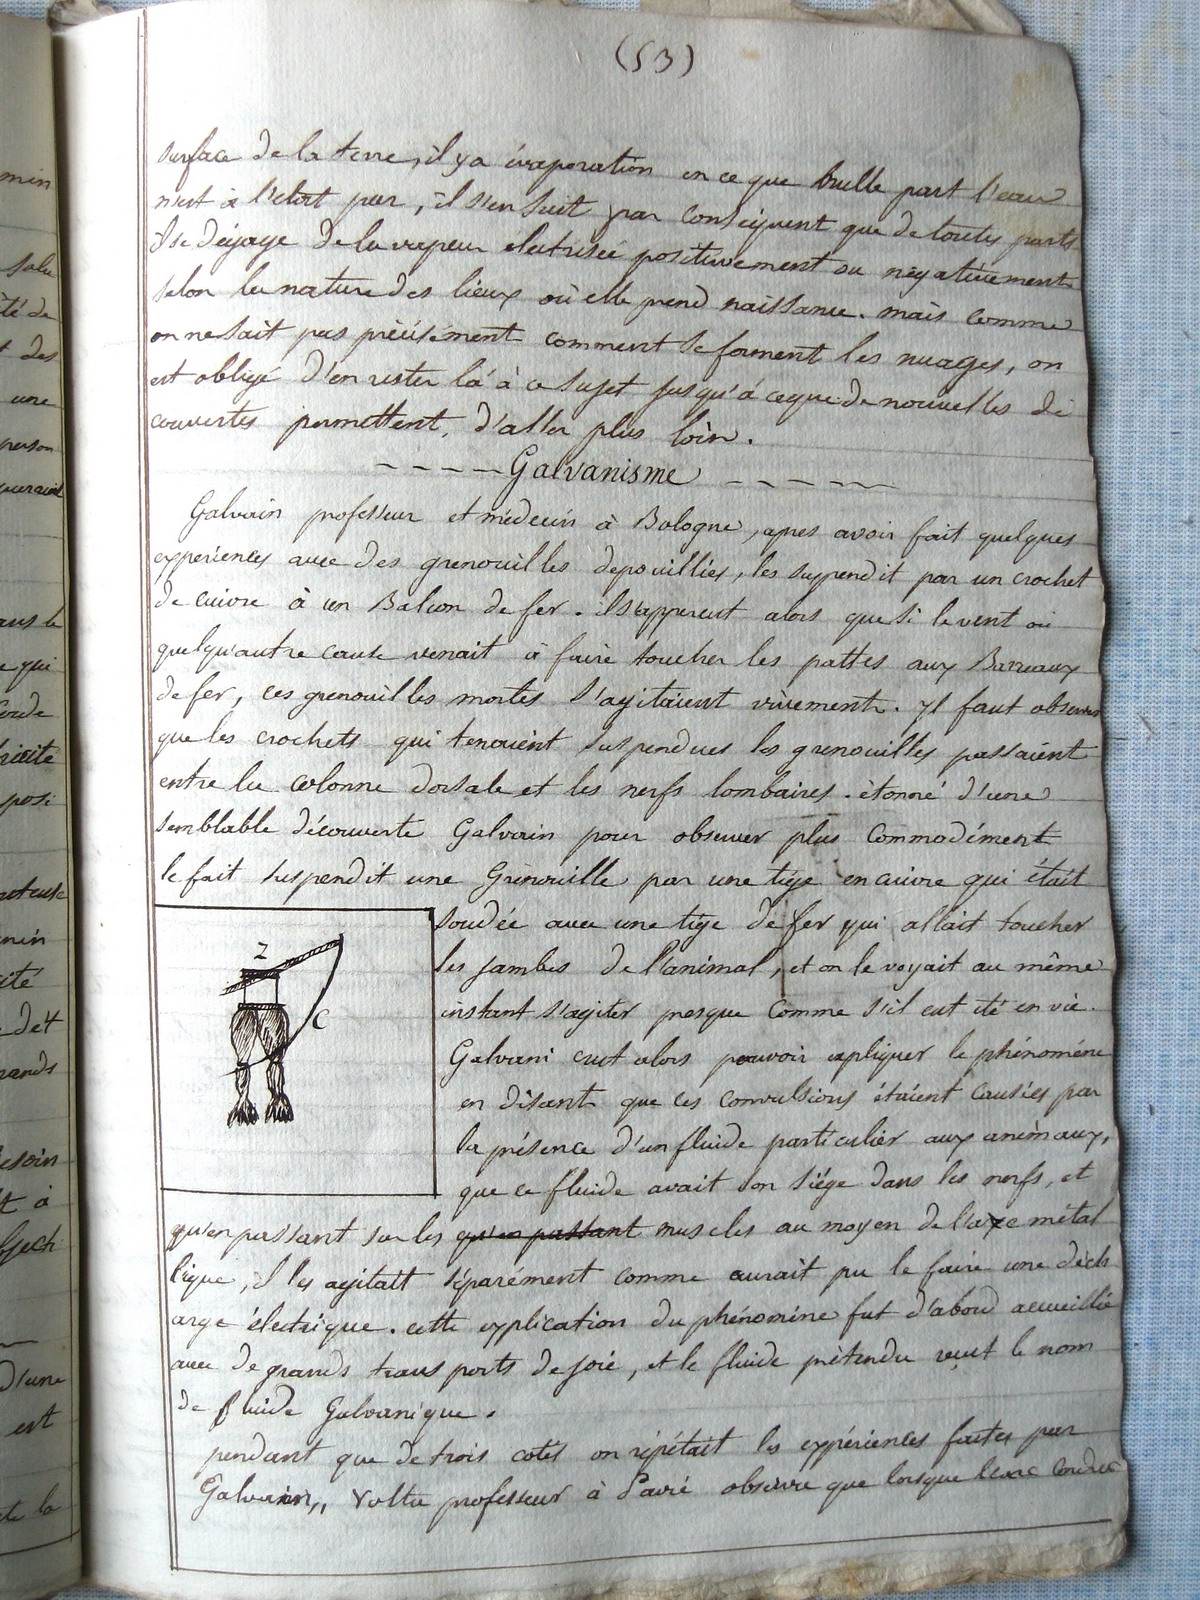 (53)
surface de la terre, il y a évaporation en ce que nulle part l'eau
n'est à l'état pur, il s'en suit par conséquent que de toutes parts
il se dégage de la vapeur électrisée positivement ou négativement
selon la nature des lieux où elle prend naissance. mais comme
on ne sait pas précisément comment se forment les nuages, on
est obligé d'en rester là à ce sujet jusqu'à ce que de nouvelles dé
couvertes permettent, d'aller plus loin.
Galvanisme
Galvain professeur et médecin à Bologne, apres avoir fait quelques
experiences avec des grenouilles depouillées, les suspendit par un crochet
de cuivre à un Balcon de fer. il s'apperçut alors que si le vent ou
quelqu'autre cause venait à faire toucher les pattes aux Barreaux
de fer, ces grenouilles mortes s'agitaient vivement. Il faut observer
que les crochets qui tenaient suspendues les grenouilles passaient
entre la colonne dorsale et les nerfs lombaires. étonné d'une
semblable découverte Galvain pour observer plus Commodément
le fait suspendit une Grenouille par une tige en cuivre qui était
soudée avec une tige de fer qui allait toucher
les jambes de l'animal, et on le voyait au même
instant s'agiter presque comme s'il eut été en vie.
Galvani crut alors pouvoir expliquer le phénomène
en disant que ces convulsions étaient causées par
la présence d'un fluide particulier aux animaux,
que ce fluide avait son siége dans les nerfs, et
qu'en passant sur les qu'en passant muscles au moyen de l'axe métal
lique, il les agitait séparément comme aurait pu le faire une déch
arge électrique. cette explication du phénomène fut d'abord accueillie
avec de grands transports de joie, et le fluide prétendu reçut le nom
de fluide Galvanique.
pendant que de trois cotés on répétait les expériences faites par
Galvain, Volta professeur à Pavie observa que lorsque l'arc conduc
Z
C
min
té de
des
une
person
ans le
qui
posi
ité
ands
esoin
à
d'une
est